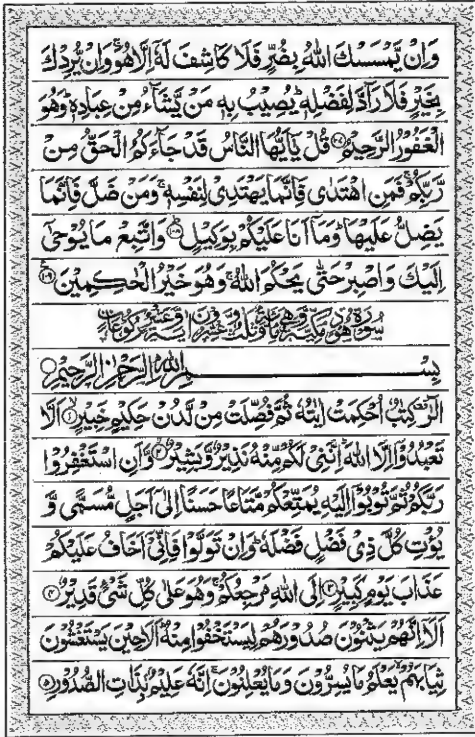 وَاِنْ يَّمْسَسْكَ اللّٰهُ بِضُرٍّ فَلَا كَاشِفَ لَهٗۤ اِلَّا هُوَ ۚ وَاِنْ يُّرِدْكَ
بِخَيْرٍ فَلَا رَآدَّ لِفَضْلِهٖ ؕ يُصِيْبُ بِهٖ مَنْ يَّشَآءُ مِنْ عِبَادِهٖ ؕ وَهُوَ
الْغَفُوْرُ الرَّحِيْمُ ﴿۱۰۷﴾ قُلْ يٰۤاَيُّهَا النَّاسُ قَدْ جَآءَكُمُ الْحَقُّ مِنْ
رَّبِّكُمْ ۚ فَمَنِ اهْتَدٰى فَاِنَّمَا يَهْتَدِىْ لِنَفْسِهٖ ۚ وَمَنْ ضَلَّ فَاِنَّمَا
يَضِلُّ عَلَيْهَا ۚ وَمَاۤ اَنَا عَلَيْكُمْ بِوَكِيْلٍ ﴿۱۰۸﴾ وَاتَّبِعْ مَا يُوْحٰۤى
اِلَيْكَ وَاصْبِرْ حَتّٰى يَحْكُمَ اللّٰهُ ۚ وَهُوَ خَيْرُ الْحٰكِمِيْنَ ﴿۱۰۹﴾
سُوْرَةُ هُوْدٍ مَّكِّيَّةٌ وَّهِىَ مِائَةٌ وَّثَلٰثٌ وَّعِشْرُوْنَ اٰيَةً وَّعَشْرُ رُكُوْعَاتٍ
بِسْمِ اللّٰهِ الرَّحْمٰنِ الرَّحِيْمِ
الٓرٰ ۚ كِتٰبٌ اُحْكِمَتْ اٰيٰتُهٗ ثُمَّ فُصِّلَتْ مِنْ لَّدُنْ حَكِيْمٍ خَبِيْرٍ ﴿۱﴾ اَلَّا
تَعْبُدُوْۤا اِلَّا اللّٰهَ ؕ اِنَّنِىْ لَكُمْ مِّنْهُ نَذِيْرٌ وَّبَشِيْرٌ ﴿۲﴾ وَّاَنِ اسْتَغْفِرُوْا
رَبَّكُمْ ثُمَّ تُوْبُوْۤا اِلَيْهِ يُمَتِّعْكُمْ مَّتَاعًا حَسَنًا اِلٰٓى اَجَلٍ مُّسَمًّى وَّ
يُؤْتِ كُلَّ ذِىْ فَضْلٍ فَضْلَهٗ ؕ وَاِنْ تَوَلَّوْا فَاِنِّىْۤ اَخَافُ عَلَيْكُمْ
عَذَابَ يَوْمٍ كَبِيْرٍ ﴿۳﴾ اِلَى اللّٰهِ مَرْجِعُكُمْ ۚ وَهُوَ عَلٰى كُلِّ شَىْءٍ قَدِيْرٌ ﴿۴﴾
اَلَاۤ اِنَّهُمْ يَثْنُوْنَ صُدُوْرَهُمْ لِيَسْتَخْفُوْا مِنْهُ ؕ اَلَا حِيْنَ يَسْتَغْشُوْنَ
ثِيَابَهُمْ ۙ يَعْلَمُ مَا يُسِرُّوْنَ وَمَا يُعْلِنُوْنَ ۚ اِنَّهٗ عَلِيْمٌۢ بِذَاتِ الصُّدُوْرِ ﴿۵﴾